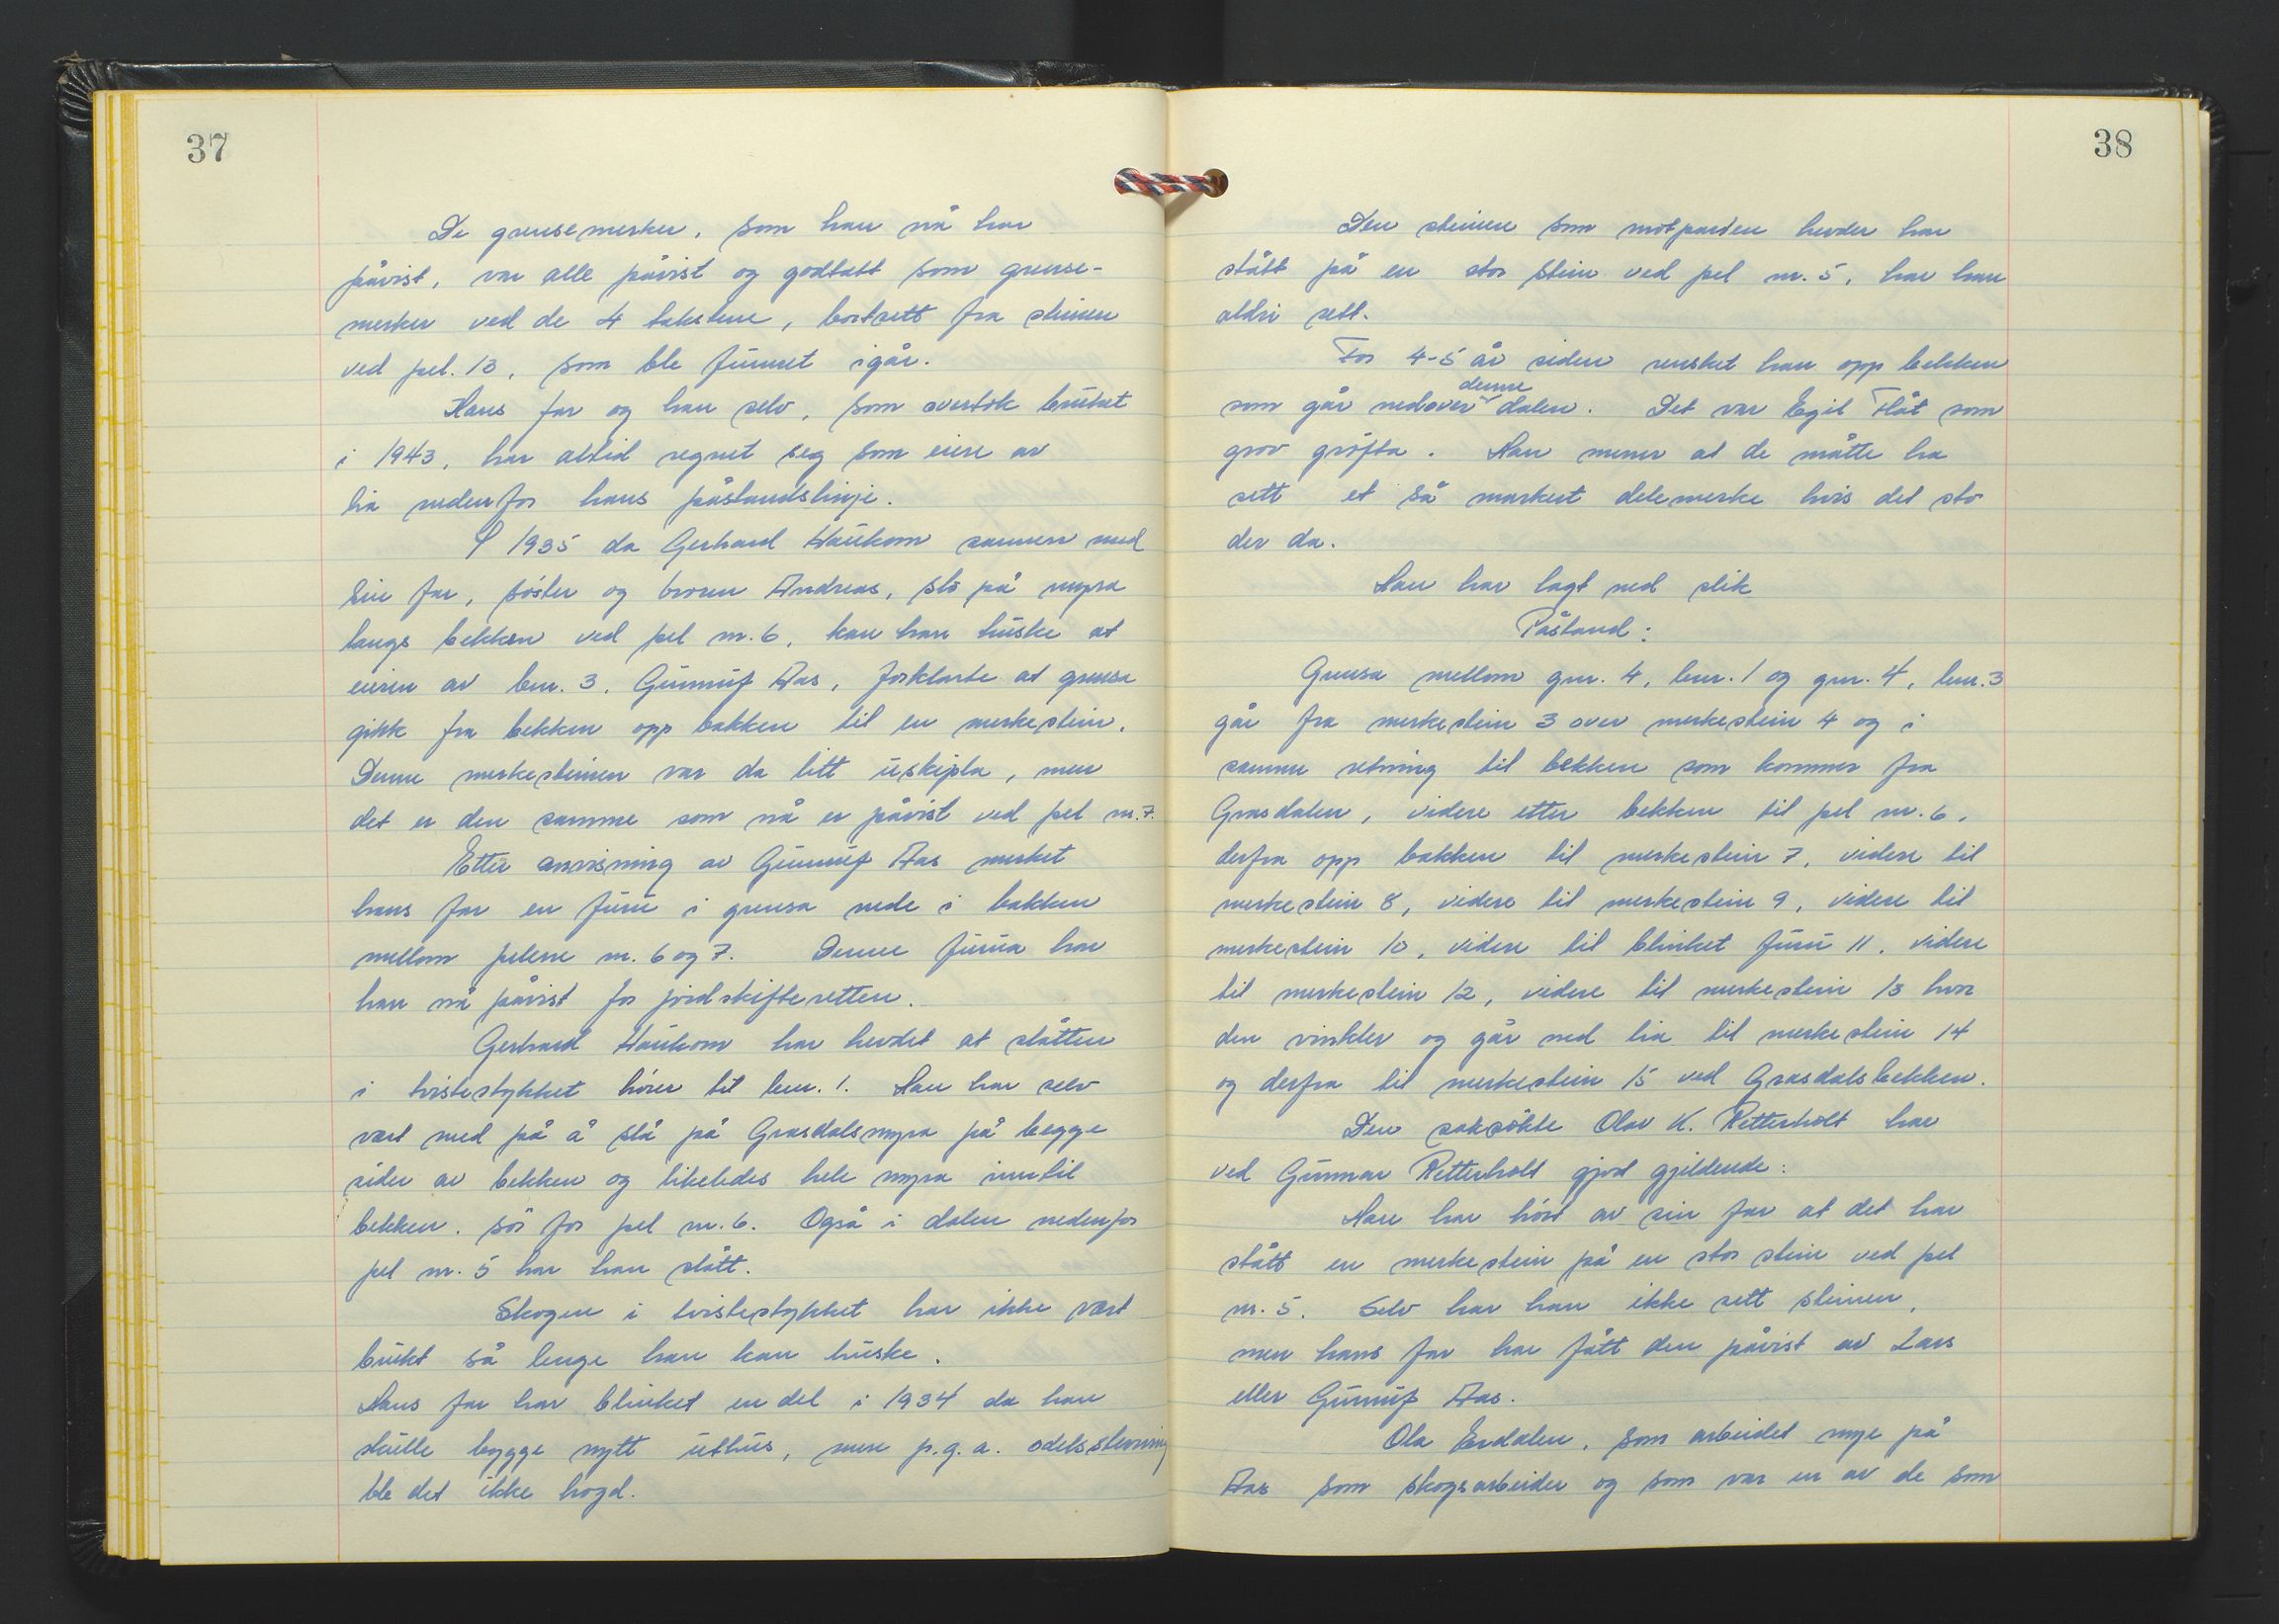 37
De grensemerker, som han nå har
påvist, var alle påvist og godtatt som grense-
merker ved de 4 takstene, bortsett fra steinen
ved pel. 13, som ble funnet igår.
Hans far og han selv, som overtok bruket
i 1943, har alltid regnet seg som eiere av
lia nedenfor hans påstandslinje.
I 1935 da Gerhard Haukom sammen med
sin far, søster og broren Andreas, slo på myra
langs bekken ved pel nr. 6, kan han huske at
eieren av bnr. 3, Gunnuf Aas, forklarte at grensa
gikk fra bekken opp bakken til en merkestein.
Denne merkesteinen var da litt uskipla, men
det er den samme som nå er påvist ved pel nr. 7.
Etter anvisning av Gunnuf Aas merket
hans far en furu i grensa nede i bakken
mellom pelene nr. 6 og 7. Denne furua har
han nå påvist for jordskifteretten.
Gerhard Haukom har hevdet at slåtten
i tvistestykket hører til bnr. 1. Han har selv
vært med på å slå på Grasdalsmyra på begge
sider av bekken og likeledes hele myra inntil
bekken, sør for pel nr. 6. Også i dalen nedenfor
pel nr. 5 har han slått.
Skogen i tvistestykket har ikke vært
brukt så lenge han kan huske.
Hans far har blinket en del i 1934 da han
skulle bygge nytt uthus, men p.g.a. odelsstevning
ble det ikke hogd.
38
Den steinen som motparten hevder har
stått på en stor stein ved pel nr. 5, har han
aldri sett.
For 4-5 år siden rensket han opp bekken
som går nedover denne dalen. Det var Egil Flåt som
grov grøfta. Han mener at de måtte ha
sett et så markert delemerke hvis det sto
der da.
Han har lagt ned slik
Påstand:
Grensa mellom gnr. 4, bnr. 1 og gnr. 4, bnr. 3
går fra merkestein 3 over merkestein 4 og i
samme retning til bekken som kommer fra
Grasdalen, videre etter bekken til pel nr. 6,
derfra opp bakken til merkestein 7, videre til
merkestein 8, videre til merkestein 9, videre til
merkestein 10, videre til blinket furu 11, videre
til merkestein 12, videre til merkestein 13 hvor
den vinkler og går ned lia til merkestein 14
og derfra til merkestein 15 ved Grasdalsbekken.
Den saksøkte Olav K. Retterholt har
ved Gunnar Retterholt gjort gjeldende:
Han har hørt av sin far at det har
stått en merkestein på en stor stein ved pel
nr. 5. Selv har han ikke sett steinen,
men hans far har fått den påvist av Lars
eller Gunnuf Aas.
Ola Erdalen, som arbeidet mye på
Aas som skogsarbeider og som var en av de som